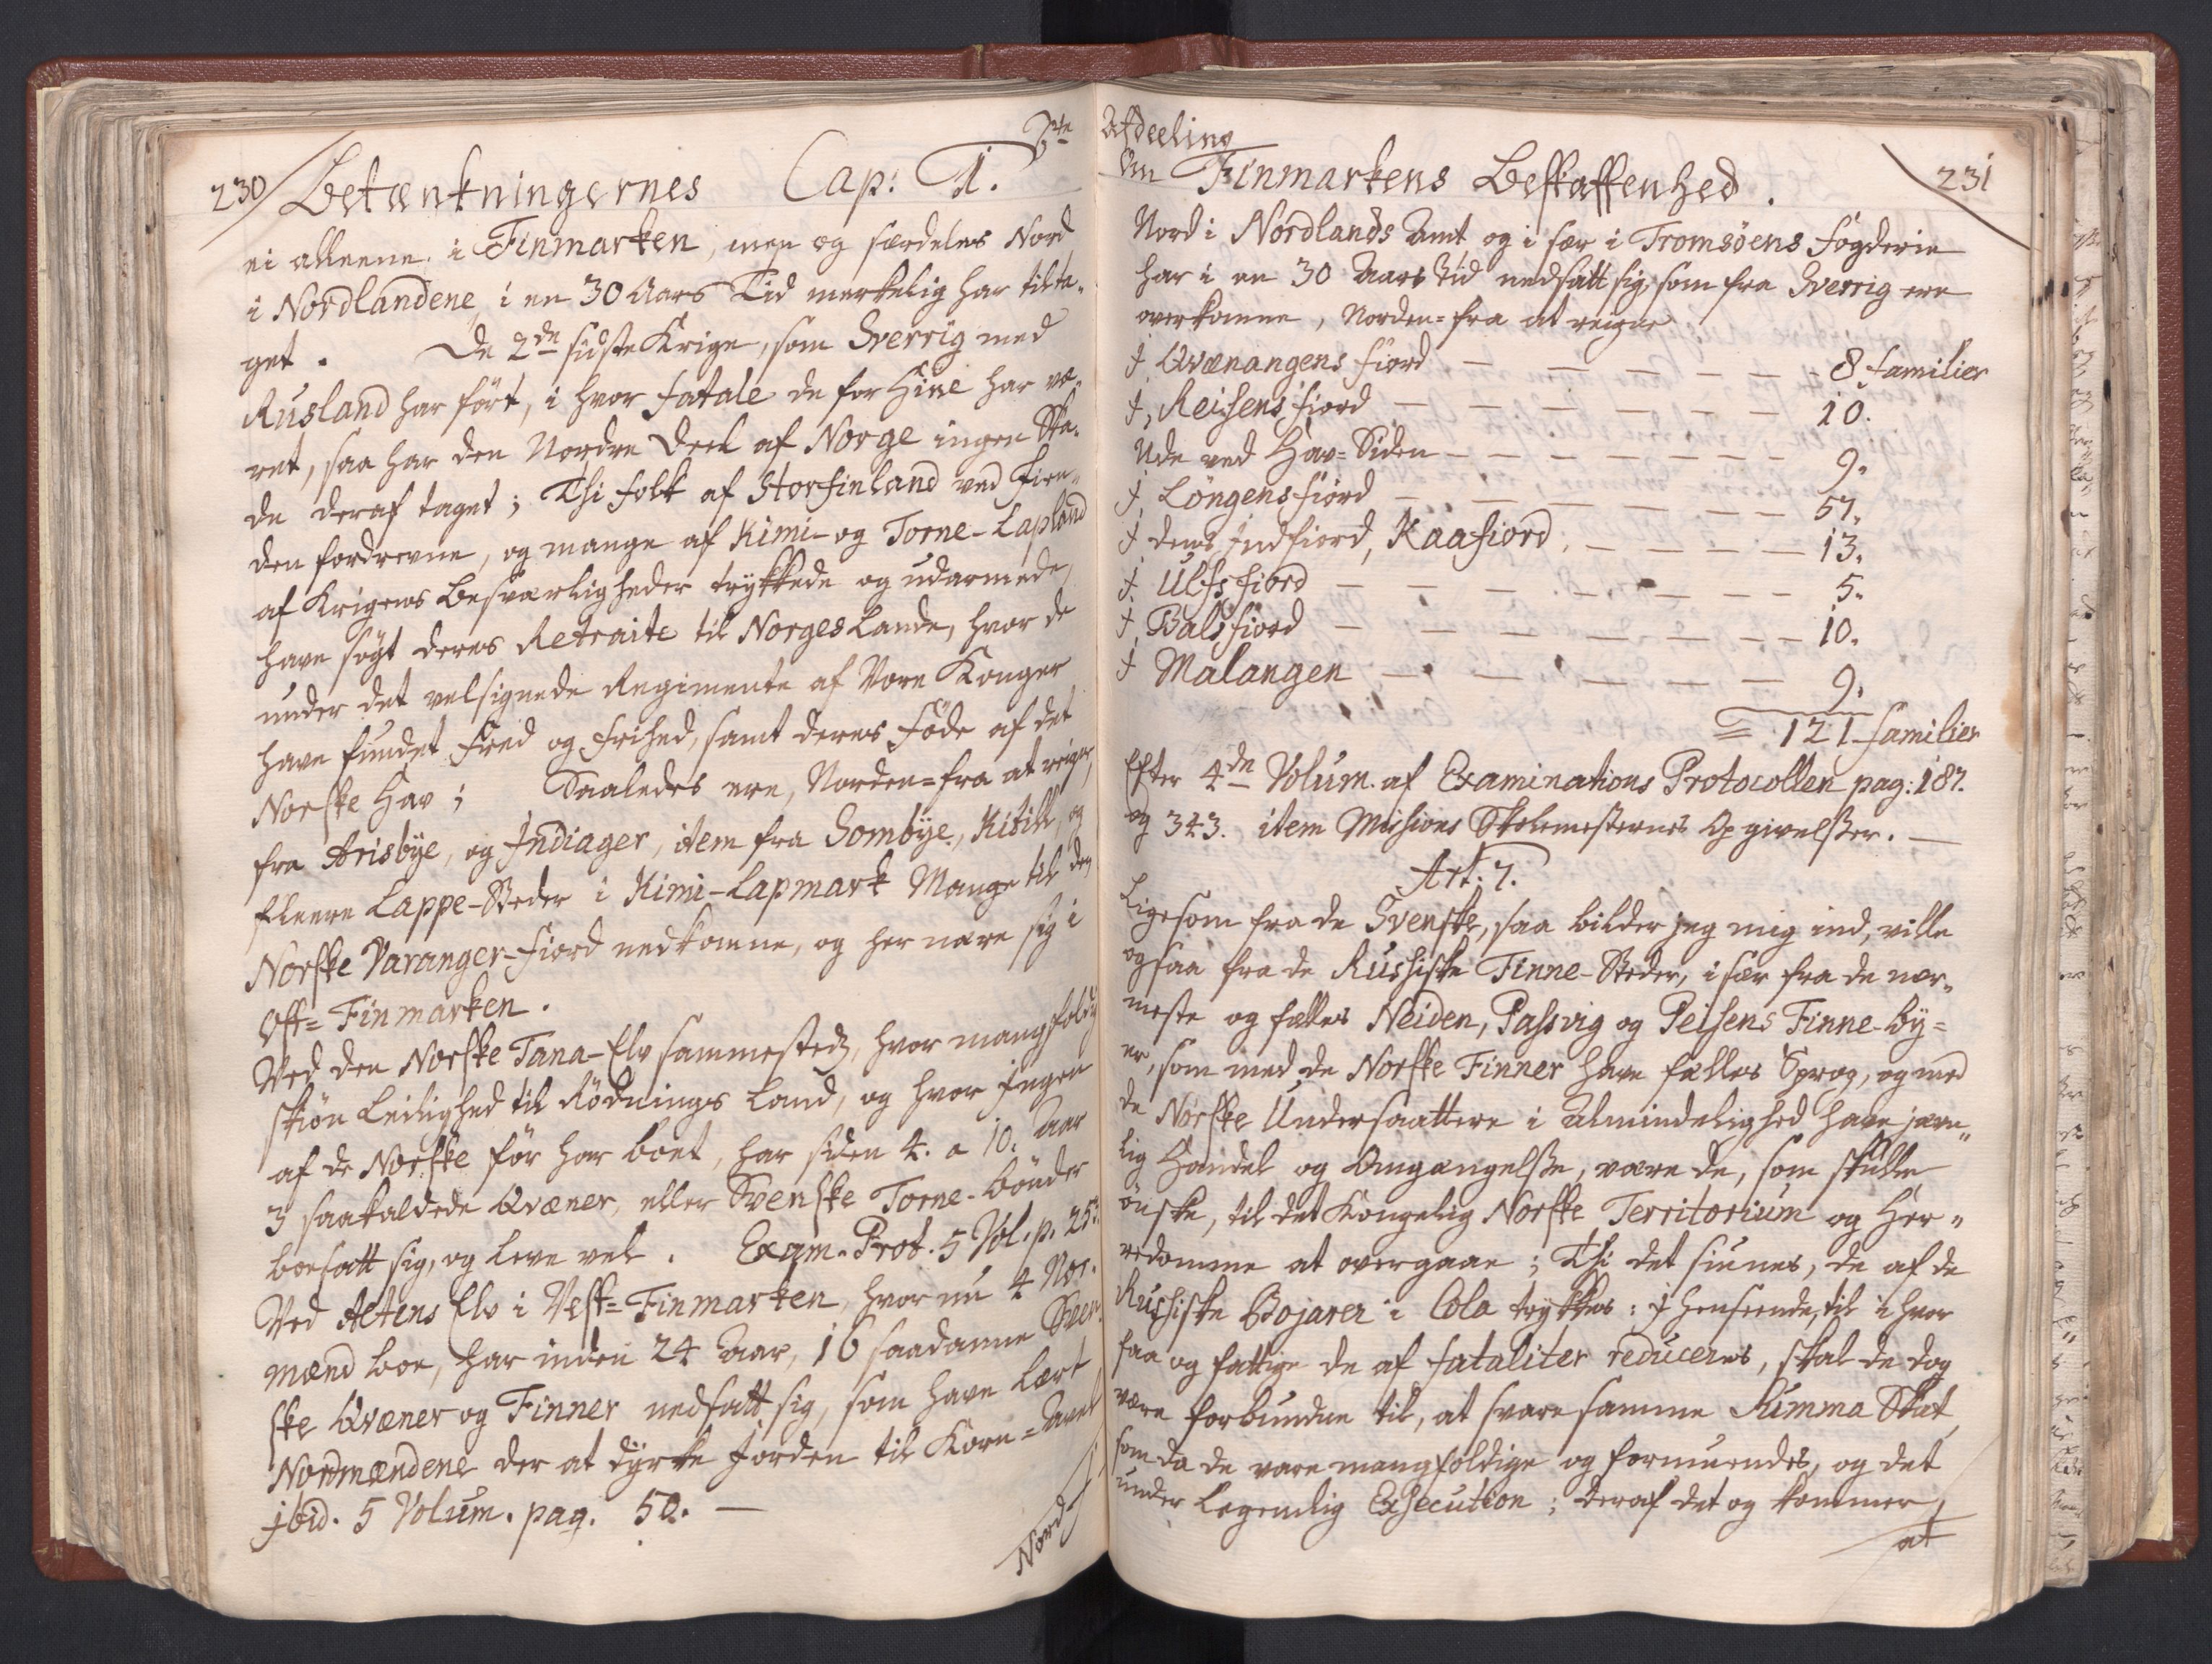 230 Betænkningernes Cap: 1. 3te
ei alleene i Finmarken, men og særdeles Nord
i Nordlandene, i en 30 Aars Tid merkelig har tilta-
get. De 2de sidste Krige, som Sverrig med
Rusland har ført, i hvor fatale de for Hine har væ-
ret, saa har den Nordre Deel af Norge ingen Ska-
de deraf taget; Thi folk af Storfinland ved Fien-
den fordrevne, og mange af Kimi- og Torne-Lapland
af Krigens Besværligheder trykkede og udarmede,
have søgt deres Retraite til Norges Lande, hvor de
under det velsignede Regimente af Vore Konger
have fundet Fred og Frihed, samt deres Føde af det
Norske Hav; Saaledes ere, Norden=fra at reigne,
fra Arisbye, og Indiager, item fra Sombye, Kitill, og
fleere Lappe-Steder i Kimi-Lapmark Mange til den
Norske Varanger-Fiord nedkomne, og her nære sig i
Øst=Finmarken.
Ved den Norske Tana-Elv sammesteds, hvor mangfoldig
skiøn Leilighed til Rødnings Land, og hvor Ingen
af de Norske før har boet, har siden 4. a 10. Aar
3 saakaldede Qvæner, eller Svenske Torne-bønder
boesatt sig, og leve vel. Exam. Prot. 5 Vol. p. 253.
Ved Altens Elv i Vest=Finmarken, hvor nu 4 Nor-
mænd boe, har inden 24 Aar, 16 saadanne Sven-
ske Qvæner og Finner nedsatt sig, som have lært
Nordmændene der at dyrke Jorden til Korn=Avel
ibid. 5 Volum. pag. 50. —
Nord
Afdeeling
Om Finmarkens Beskaffenhed. 231
Nord i Nordlands Amt og i sær i Tromsøens Fogderie
har i en 30 Aars Tid nedsatt sig, som fra Sverrig ere
overkomne, Norden=fra at reigne
I Qvænangens fiord — 8 familier
I, Reisens fiord — 10.
Ude ved Hav=Siden — 9.
I, Löngens fiörd — 57.
I dens Indfiord, Kaafiord, — 13.
I. Ulfs fiord — 5.
I, Balsfiord — 10.
I Malangen — 9.
= 121 familier
Efter 4de Volum. af Examinations Protocollen pag: 187.
og 343. item Missions Skolemesternes Opgivelser. —
Art: 7.
Ligesom fra de Svenske, saa bilder jeg mig ind, ville
ogsaa fra de Russiske Finne-Steder, i sær fra de nær-
meste og fælles Neiden, Passvig og Peisens Finne-By=
er, som med de Norske Finner have fælles Sprog, og med
de Norske Undersaattere i Almindelighed have jævn-
lig Handel og Omgængelse, være de, som skulle
ønske, til det Kongelig Norske Territorium og Her-
redømme at overgaae; Thi det siunes, de af de
Russiske Bojarer i Cola trykkes: I henseende, til i hvor
faa og fattige de af fataliter reduceres, skal de dog
være forbundne til, at svare samme Summa Skat,
som da de vare mangfoldige og formuendes, og det
under Legemlig Exsecution; deraf det og kommer,
at